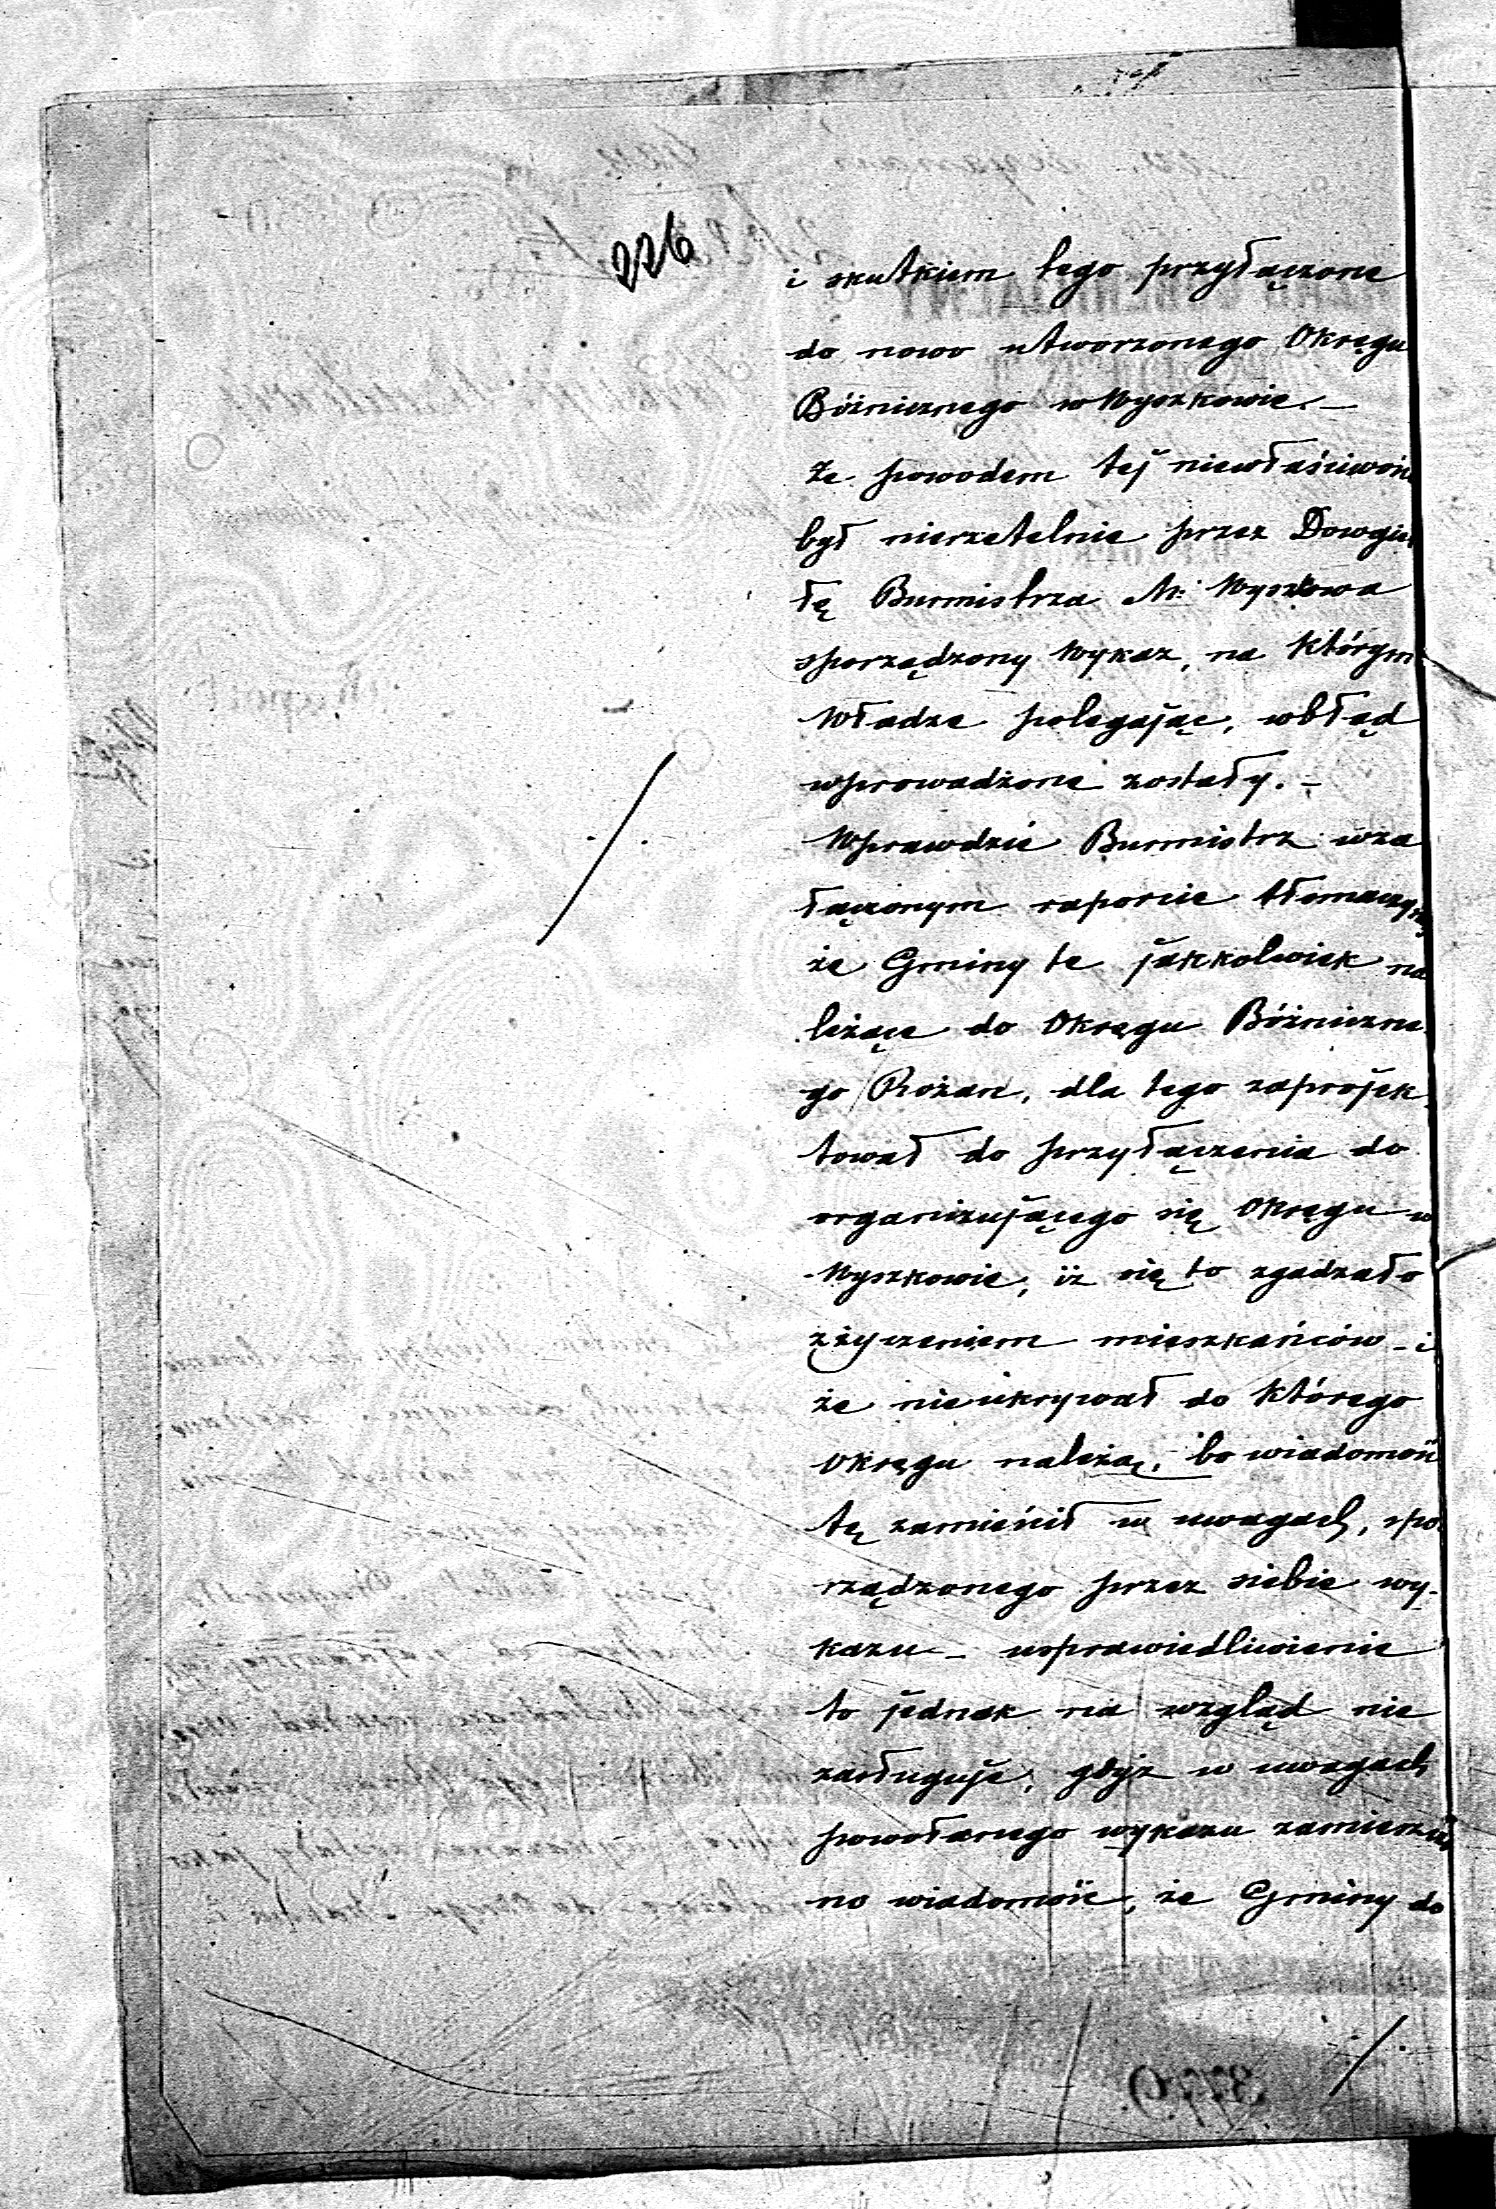 226
i skutkiem tego przyłączone
do nowo utworzonego Okręgu
Bóżnicznego w Wyszkowie. –
Że powodem tej niewłaściwoś
był nierzetelnie przez Dowgia
łę Burmistrza M: Wyszkowa
sporządzony Wykaz, na którym
Władze polegając, wbłąd
wprowadzone zostały. –
Wprawdzie Burmistrz wza
łączonym raporcie tłomaczy się
że Gminy te jakkolwiek na
leżące do Okręgu Bóżniczne
go Rożan, dla tego zaprojek
tował do przyłączenia do
organizującego się Okręgu w
Wyszkowie, iż się to zgadzało
z życzeniem mieszkańców – i
że nieukrywał do którego
Okręgu należą, bo wiadomość
tę zamieścił w uwagach, spo
rządzonego przez siebie wy-
kazu – usprawiedliwienie
to jednak na wzgląd nie
zasługuje, gdyż w uwagach
powołanego wykazu zamieszczo
no wiadomość, że Gminy do